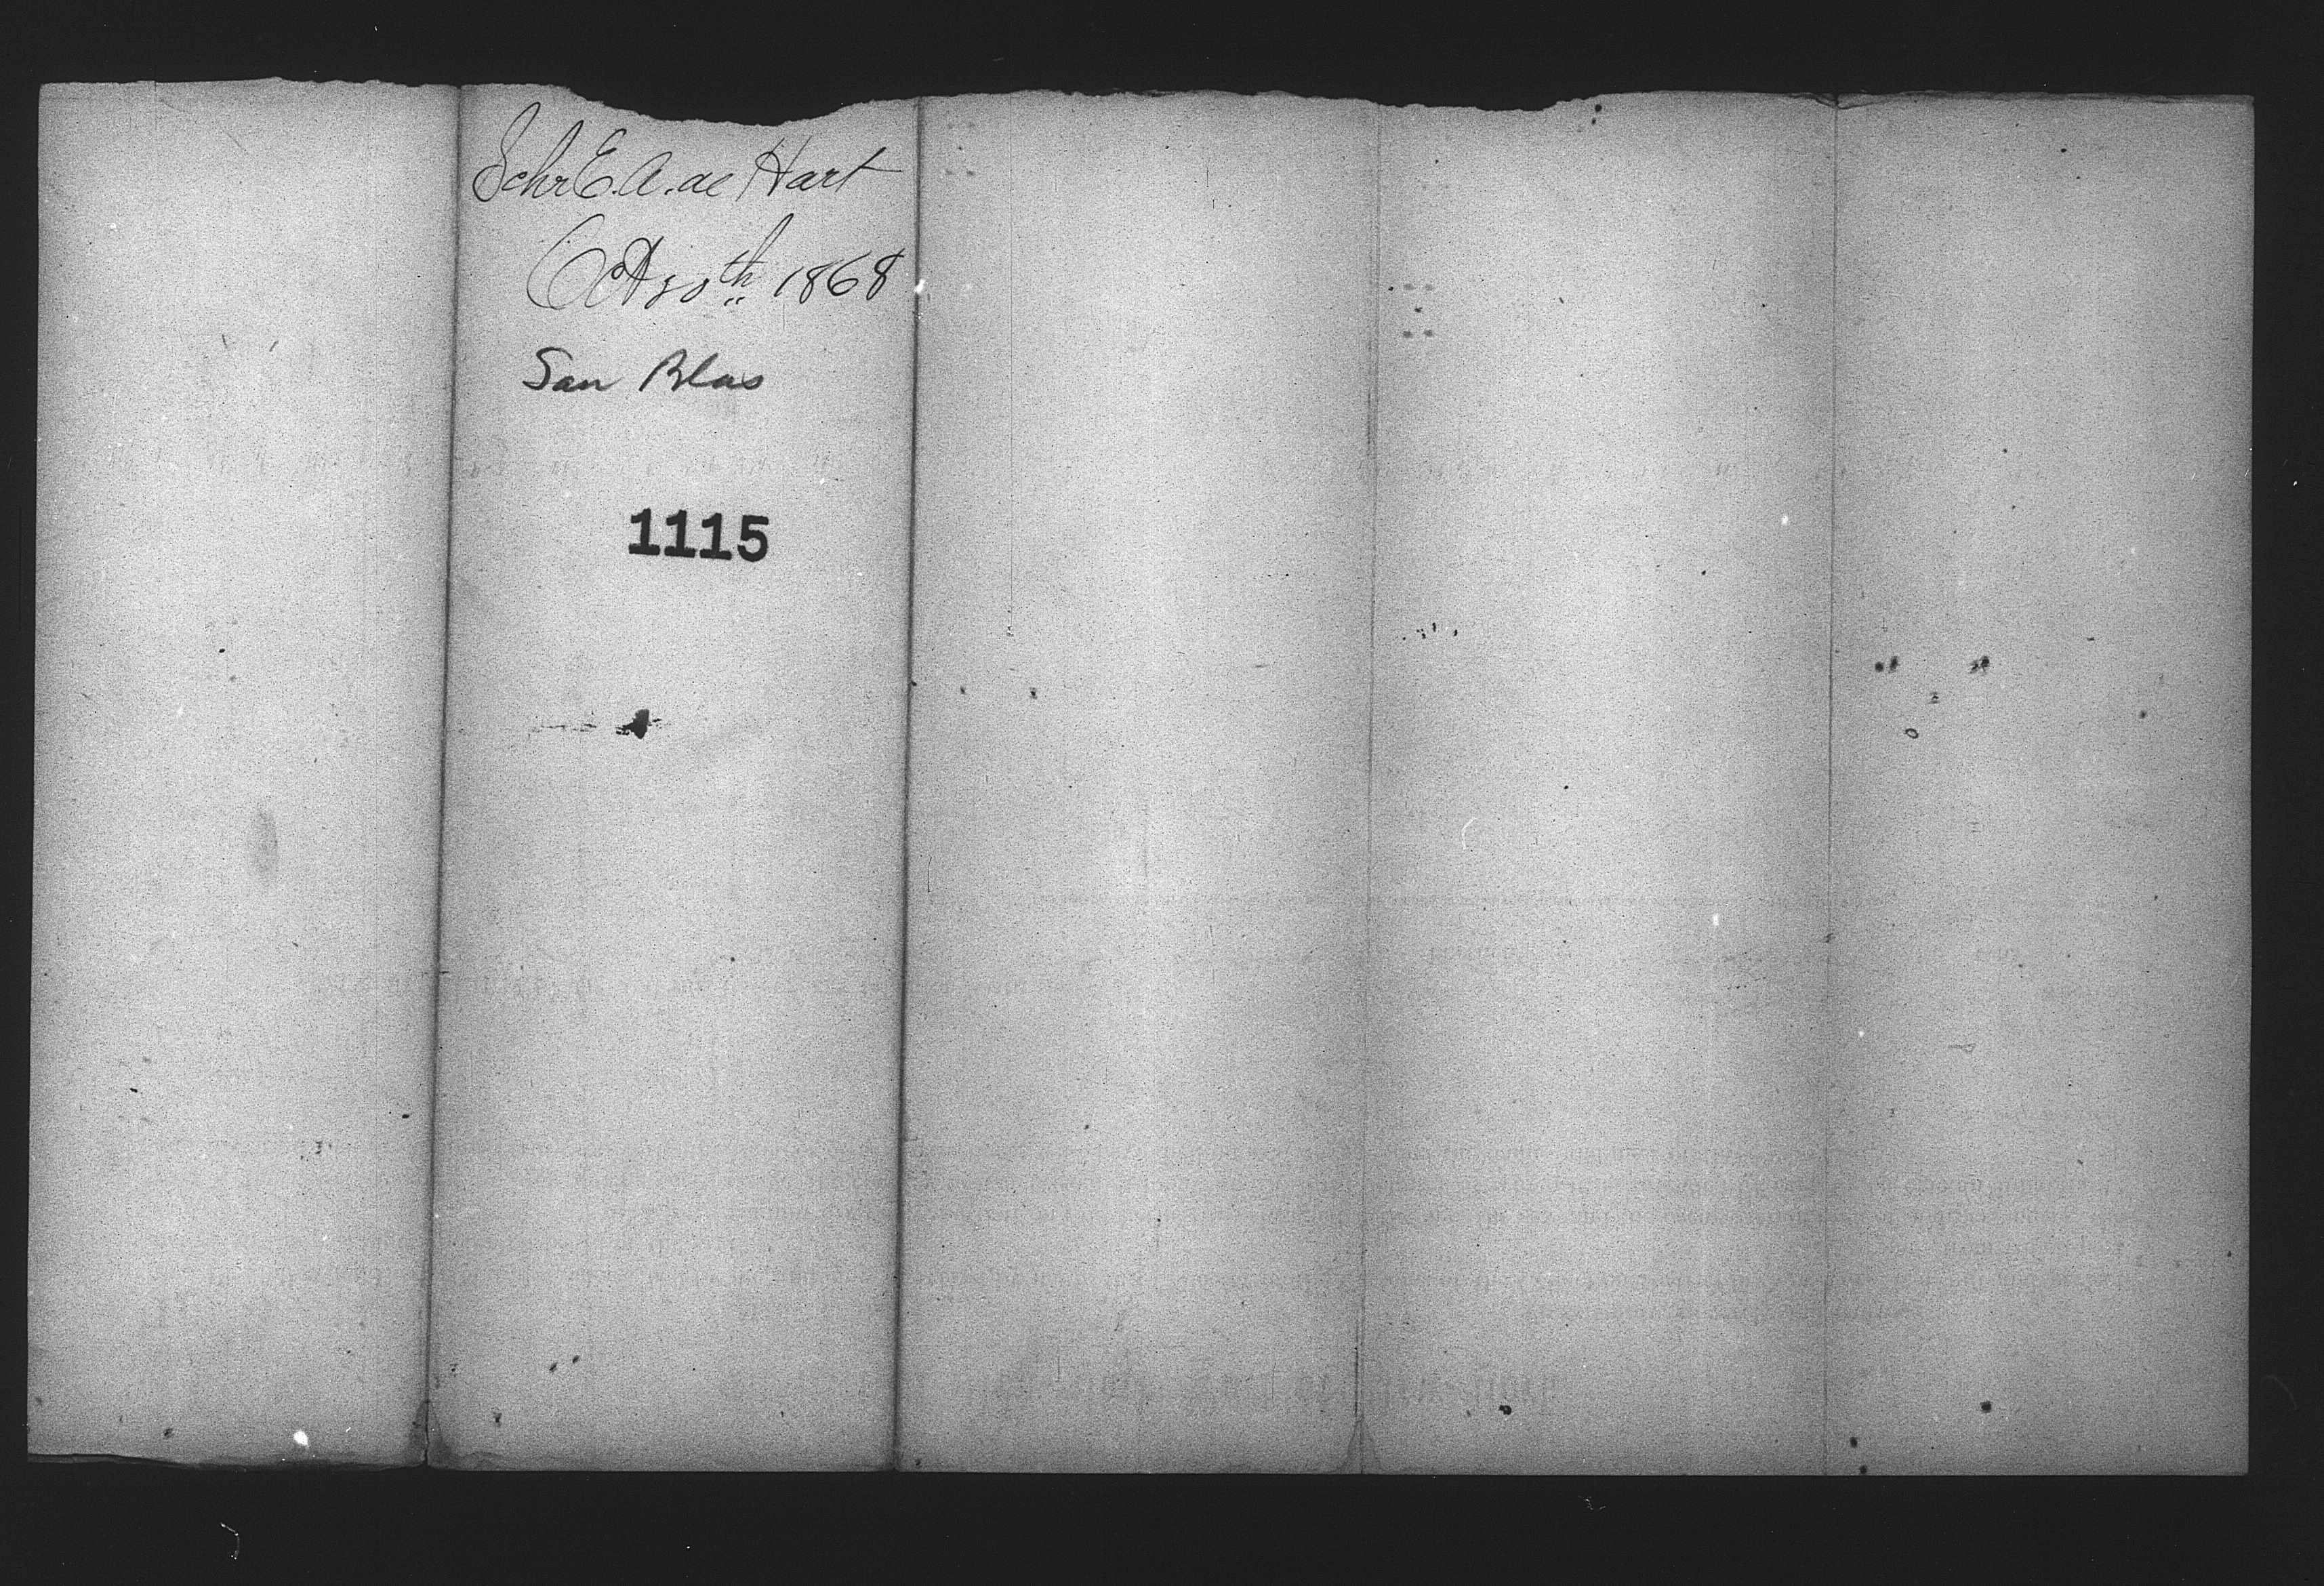 Schr E. A. de Hart
Oct 20th 1868
San Blas
1115